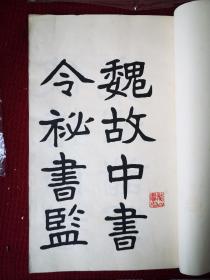 魏故中書
令祕書監